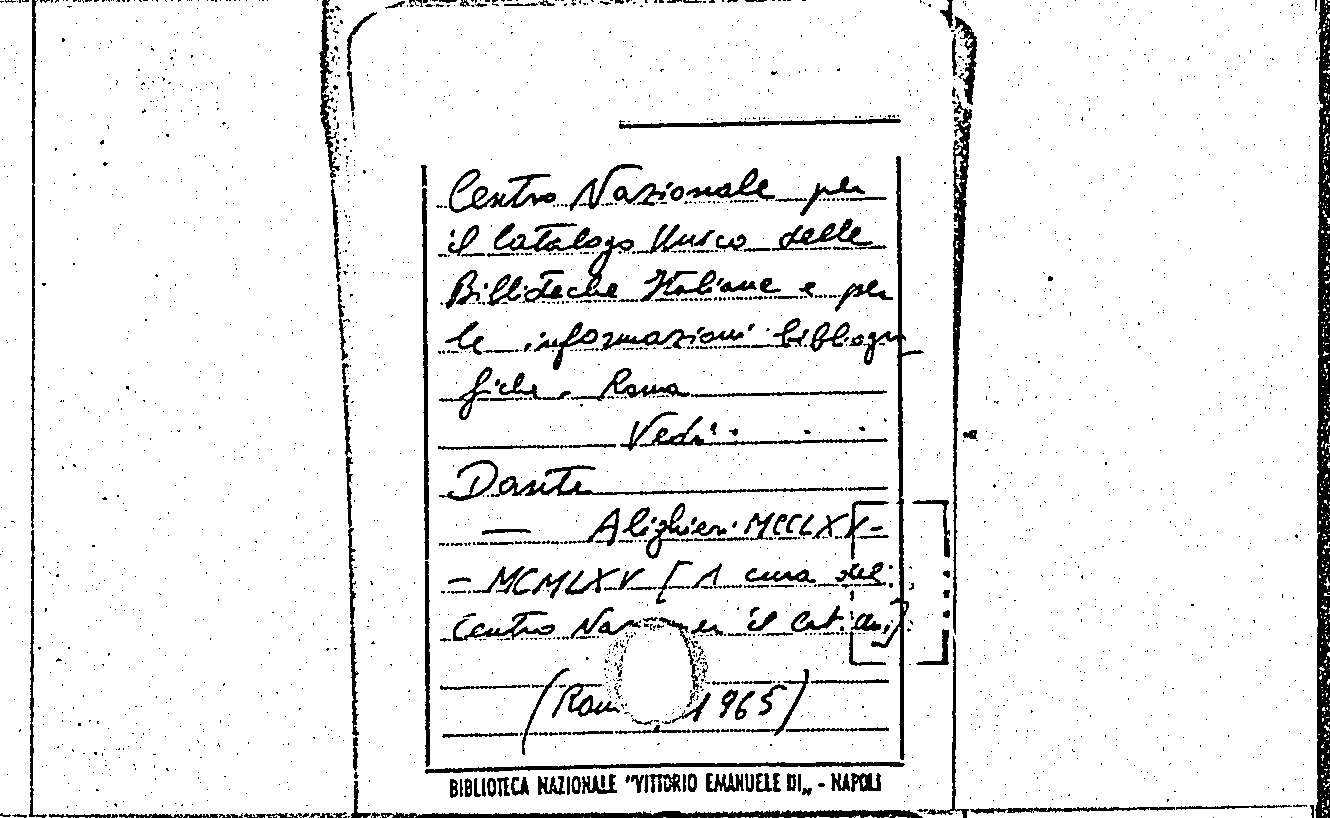 Centro Nazionale per
il Catalogo Unico delle
Biblioteche Italiane e per
le informazioni bibliogra
fiche. Roma
Vedi:
Dante
— Alighieri MCCLXV-
- MCMLXV [A cura del
Centro Naz. per il Cat.
(Roma 1965)
BIBLIOTECA NAZIONALE "VITTORIO EMANUELE III„ - NAPOLI